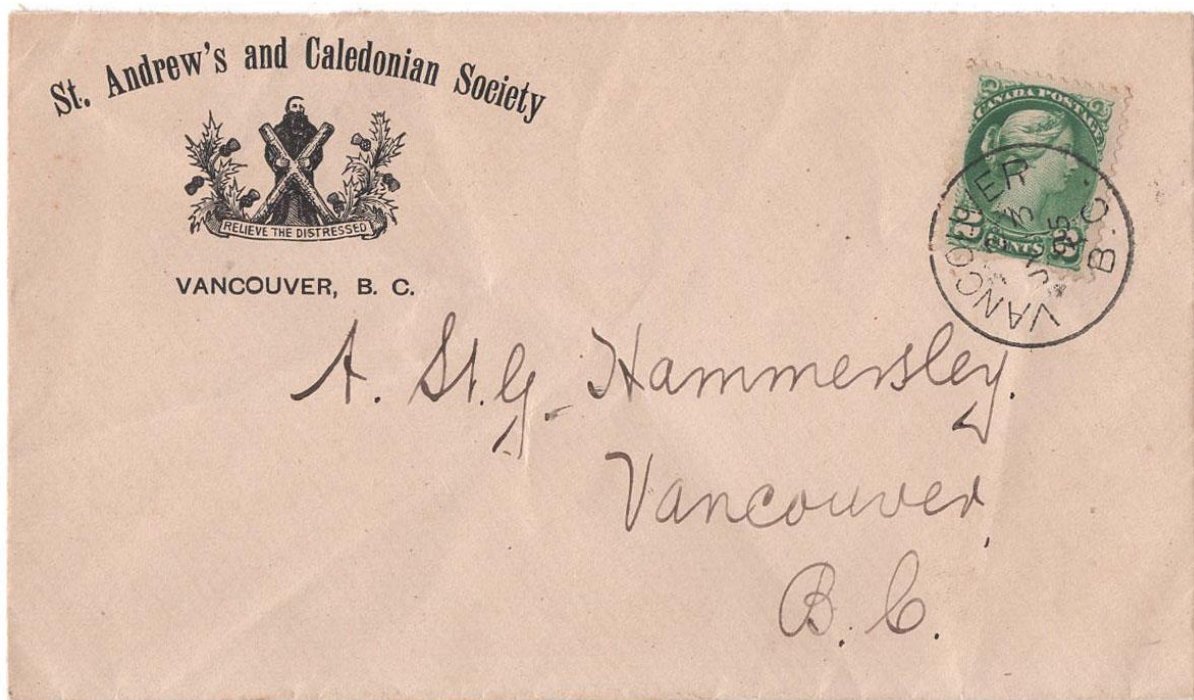 St. Andrew's and Caledonian Society
RELIEVE THE DISTRESSED
VANCOUVER, B. C.
CANADA POSTAGE
2 CENTS 2
VANCOUVER B.C.
95
A. St. G. Hammersley.
Vancouver,
B. C.